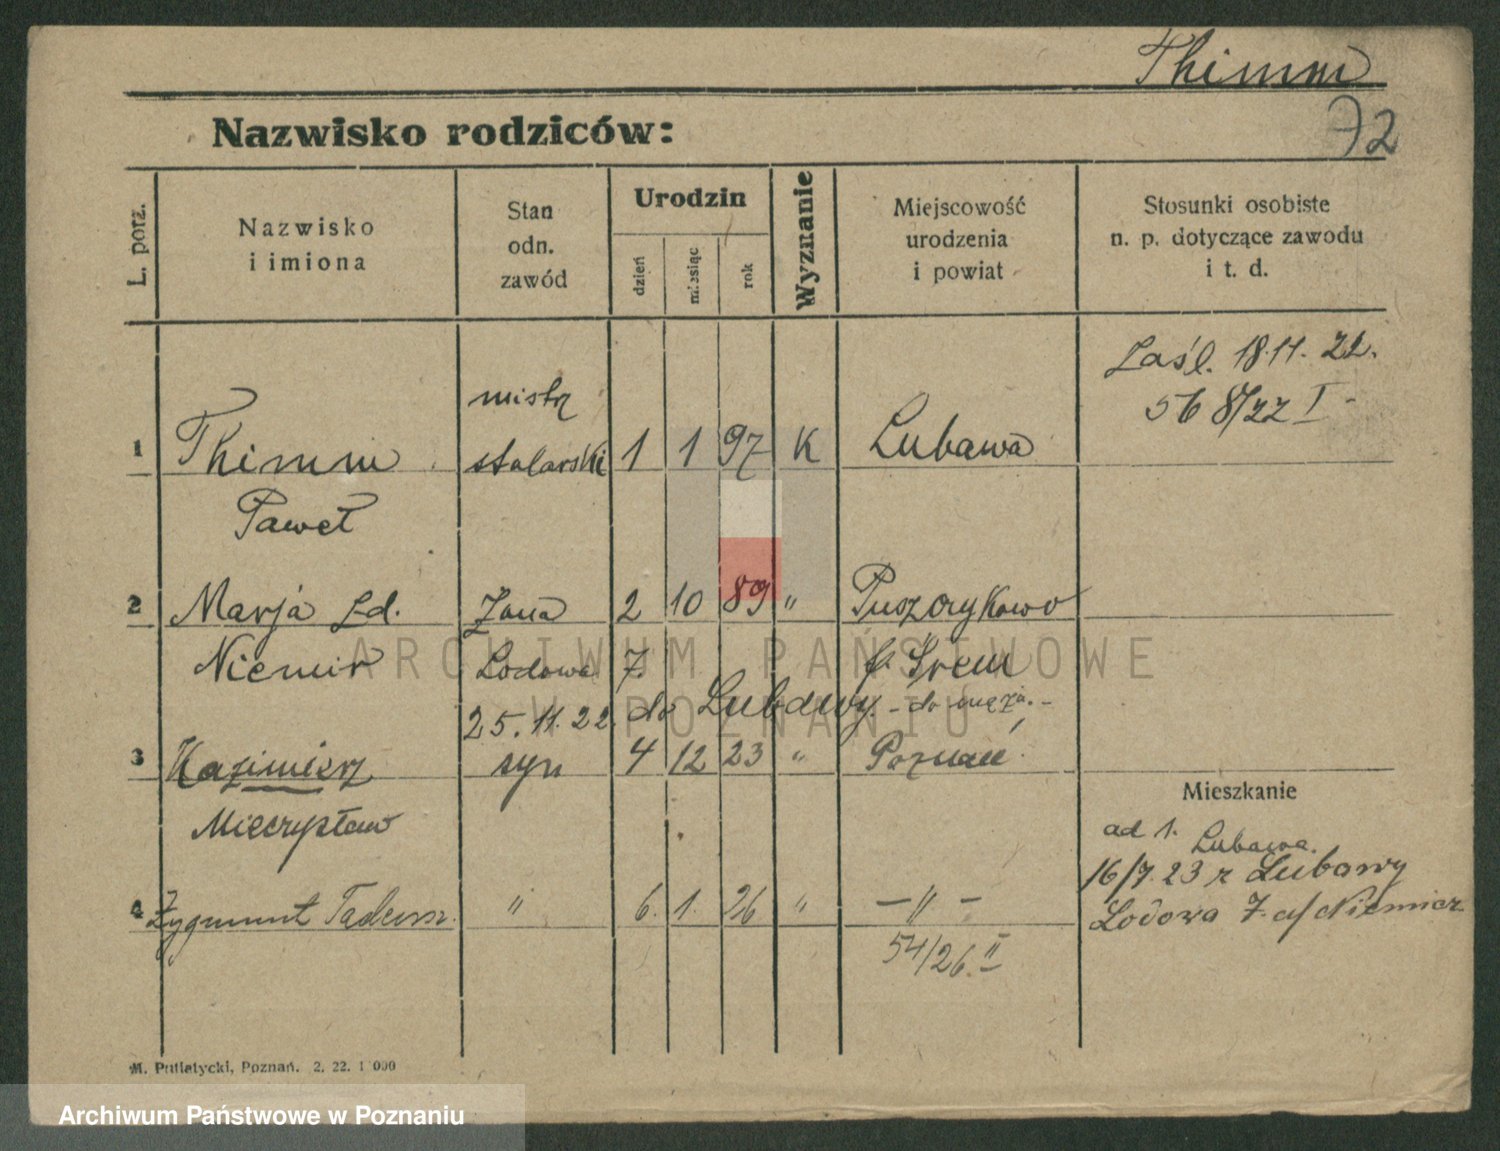 Thimm
72
Nazwisko rodziców:
L. porz.
Nazwisko
i imiona
Stan
odn.
zawód
Urodzin
dzień
miesiąc
rok
Wyznanie
Miejscowość
urodzenia
i powiat
Stosunki osobiste
n. p. dotyczące zawodu
i t. d.
Zaśl. 18.11. 22.
56 8/22 I -
mistrz
1 Thimm stolarski 1 1 97 K Lubawa
Paweł
2 Marja zd. żona 2 10 89 " Puszczykowo
Niemir Lodowa 7. p. Śrem
25.11.22. do Lubawy - do męża. -
3 Kazimierz syn 4 12 23 " Poznań
Mieczysław
Mieszkanie
ad 1. Lubawa.
16/7.23 z Lubawy
Lodowa 7. a/
4 Zygmunt Tadeusz " 6. 1. 26 " - " -
54/26. II
M. Putiatycki, Poznań. 2. 22. 1 000
ARCHIWUM PAŃSTWOWE
W POZNANIU
Archiwum Państwowe w Poznaniu